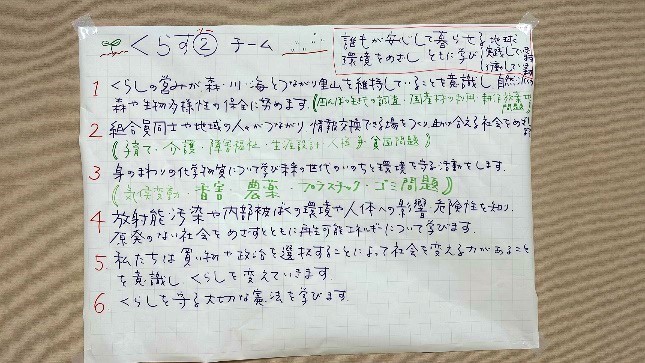 くらす② チーム
誰もが安心して暮らせる地球
環境をめざし ともに学び
実践していきます
行動していきます
1 くらしの営みが森・川・海とつながり里山を維持していることを意識し 自然
森や生物多様性の保全に努めます。
2 組合員同士や地域の人々がつながり 情報交換できる場をつくり 合える社会をめざ
(子育て・介護・障害福祉・生活設計・人権・食品問題)
3 身のまわりの化学物質について学び未来の世代のいのちと環境を守る活動をします。
(気候変動・香害・農薬・プラスチック・ゴミ問題)
4 放射能汚染や内部被ばくの環境や人体への影響 危険性を知り、
原発のない社会をめざすとともに再生可能エネルギーについて学びます。
5 私たちは買い物や政治を選択することによって社会を変える力があること
を意識し くらしを変えていきます。
6 くらしを守る大切な憲法を学びます。